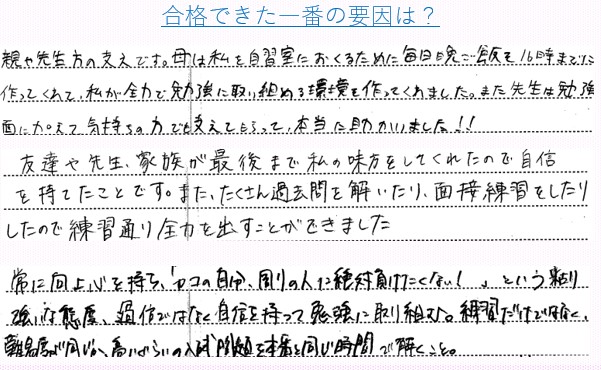 合格できた一番の要因は？
親や先生方の支えです。母は私を自習室におくるために毎日晩ご飯を16時までに
作ってくれて、私が全力で勉強に取り組める環境を作ってくれました。また先生は勉強
面に加えて気持ちの力でも支えてもらって、本当に助かりました!!
友達や先生、家族が最後まで私の味方をしてくれたので自信
を持てたことです。また、たくさん過去問を解いたり、面接練習をしたり
したので練習通り全力を出すことができました
常に向上心を持ち、「カコの自分、周りの人に絶対負けたくない！」という粘り
強いな態度、過信ではなく自信を持って勉強に取り組む。練習だけではなく、
難易度が同じか、高いぐらいの入試問題を本番と同じ時間で解くこと。